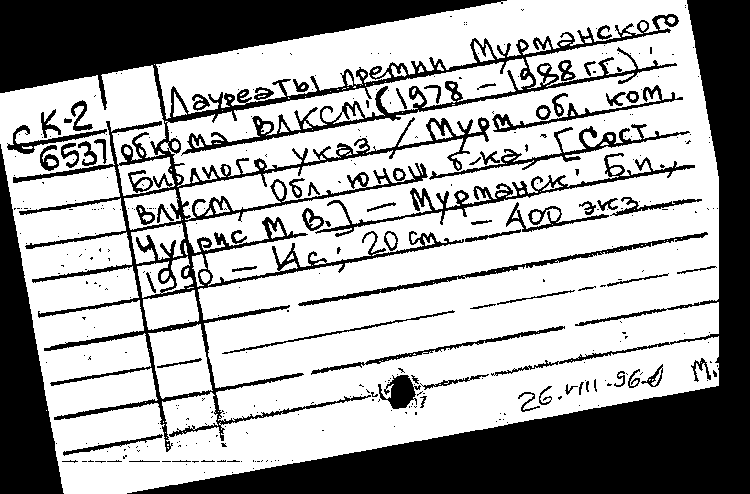 Лауреаты премии Мурманского
СК-2
обкома ВЛКСМ: (1978 – 1988 гг.) :
6537
Библиогр. указ. / Мурм. обл. ком.
ВЛКСМ, Обл. юнош. б-ка; [Сост.
М. В.]. – Мурманск: Б.и.,
1990. – 14 с.; 20 см. – 400 экз.
26.VIII-96
М.